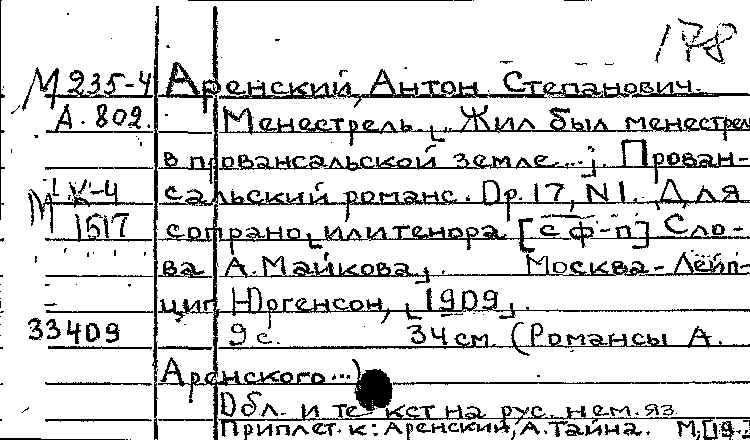 178
М 235-4 Аренский, Антон Степанович.
А. 802. Менестрель. „Жил был менестрель
в провансальской земле...". Прован-
М IК-4 сальский романс. Op. 17, N 1. Для
1517 сопрано или тенора [с ф-п] Сло-
ва А. Майкова. Москва-Лейп-
циг, Юргенсон, [1909].
33409 9 с. 34 см. (Романсы А.
Аренского...)
Обл. и текст на рус. нем. яз
Приплет. к: Аренский, А. Тайна. М, [19..